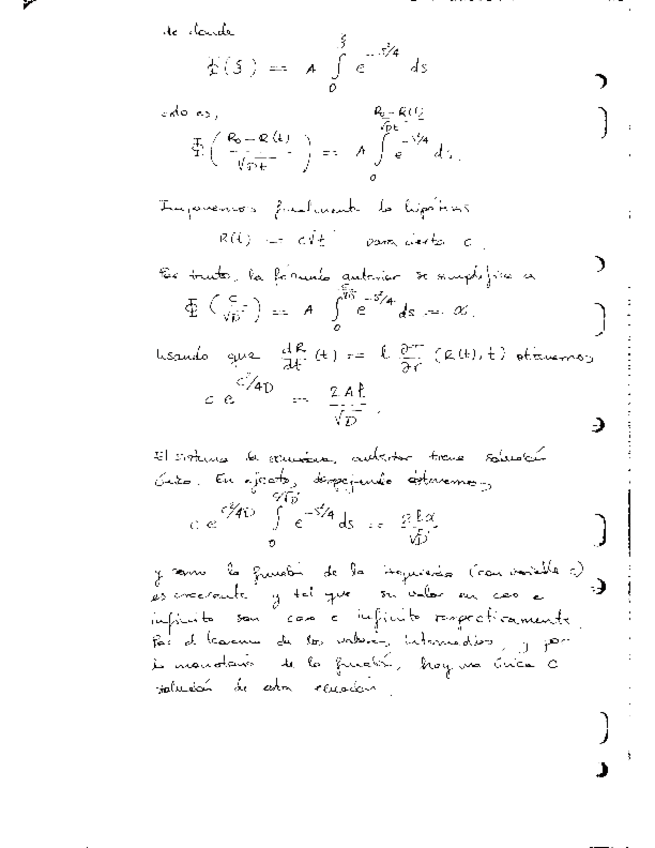 de donde
Φ(ξ) = A ∫₀^ξ e^{-s²/4} ds
esto es,
Φ( (R₀ - R(t)) / √(Dt) ) = A ∫₀^{(R₀ - R(t))/√(Dt)} e^{-s²/4} ds.
Imponemos finalmente la hipótesis
R(t) = c√t para cierta c.
Por tanto, la fórmula anterior se simplifica a
Φ( c/√D ) = A ∫₀^{c/√D} e^{-s²/4} ds = α.
Usando que dR/dt (t) = l ∂T/∂r (R(t), t) obtenemos
c e^{c²/4D} = 2Al/√D.
El sistema de ecuaciones anterior tiene solución
única. En efecto, despejando obtenemos
c e^{c²/4D} ∫₀^{c/√D} e^{-s²/4} ds = 2lα/√D
y como la función de la izquierda (con variable c)
es creciente y tal que su valor en cero e
infinito son cero e infinito respectivamente
Por el teorema de los valores intermedios, y por
la monotonía de la función, hay una única c
solución de esta ecuación.